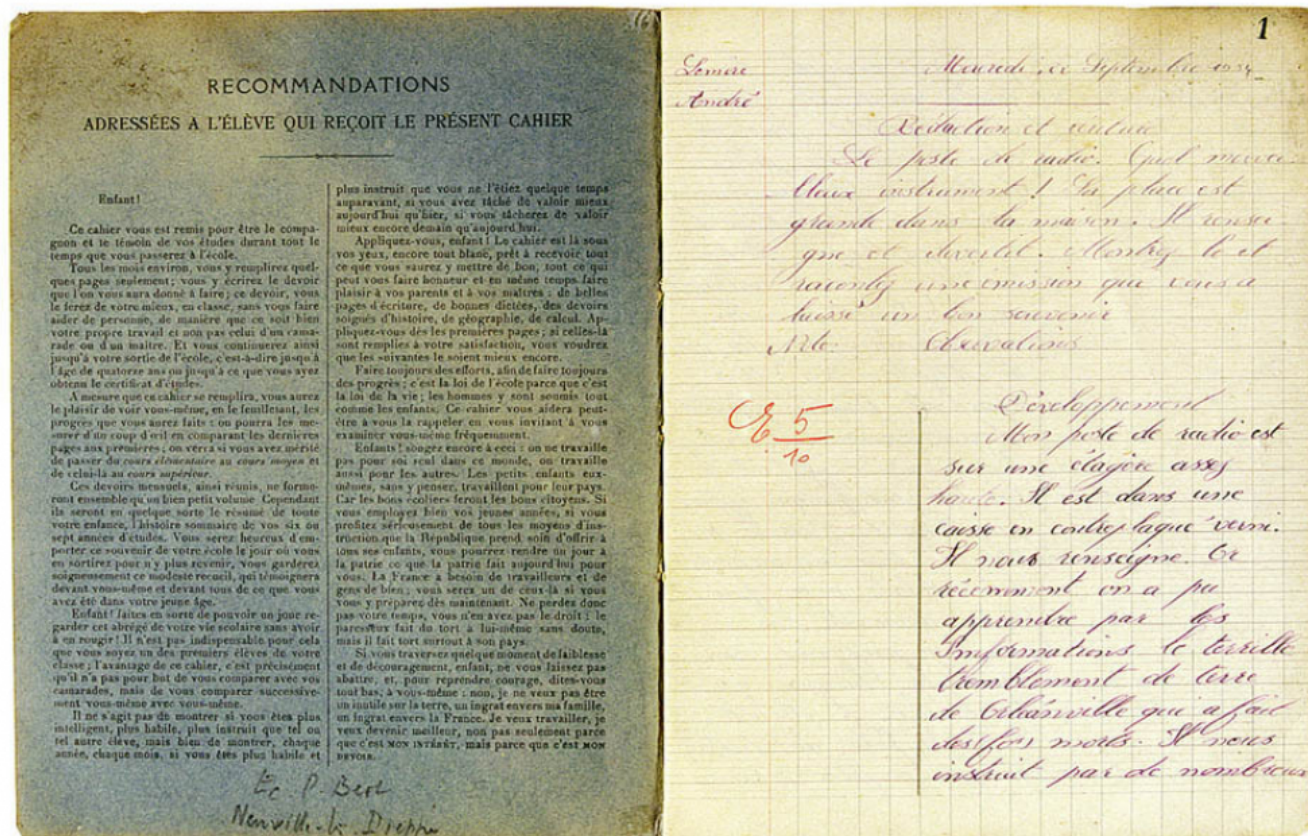 RECOMMANDATIONS
ADRESSÉES A L'ÉLÈVE QUI REÇOIT LE PRÉSENT CAHIER
Enfant!
Ce cahier vous est remis pour être le compa-
gnon et le témoin de vos études durant tout le
temps que vous passerez à l'école.
Tous les mois environ, vous y remplirez quel-
ques pages seulement; vous y écrirez le devoir
que l'on vous aura donné à faire; ce devoir, vous
le ferez de votre mieux, en classe, sans vous faire
aider de personne, de manière que ce soit bien
votre propre travail et non pas celui d'un cama-
rade ou d'un maître. Et vous continuerez ainsi
jusqu'à votre sortie de l'école, c'est-à-dire jusqu'à
l'âge de quatorze ans ou jusqu'à ce que vous ayez
obtenu le certificat d'études.
A mesure que ce cahier se remplira, vous aurez
le plaisir de voir vous-même, en le feuilletant, les
progrès que vous aurez faits; on pourra les me-
surer d'un coup d'œil en comparant les dernières
pages aux premières; on verra si vous avez mérité
de passer du cours élémentaire au cours moyen et
de celui-là au cours supérieur.
Ces devoirs mensuels, ainsi réunis, ne forme-
ront ensemble qu'un bien petit volume. Cependant
ils seront en quelque sorte le résumé de toute
votre enfance, l'histoire sommaire de vos six ou
sept années d'études. Vous serez heureux d'em-
porter ce souvenir de votre école le jour où vous
en sortirez pour n'y plus revenir, vous garderez
soigneusement ce modeste recueil, qui témoignera
devant vous-même et devant tous de ce que vous
avez été dans votre jeune âge.
Enfant! faites en sorte de pouvoir un jour re-
garder cet abrégé de votre vie scolaire sans avoir
à en rougir! Il n'est pas indispensable pour cela
que vous soyez un des premiers élèves de votre
classe; l'avantage de ce cahier, c'est précisément
qu'il n'a pas pour but de vous comparer avec vos
camarades, mais de vous comparer successive-
ment vous-même avec vous-même.
Il ne s'agit pas de montrer si vous êtes plus
intelligent, plus habile, plus instruit que tel ou
tel autre élève, mais bien de montrer, chaque
année, chaque mois, si vous êtes plus habile et
plus instruit que vous ne l'étiez quelque temps
auparavant, si vous avez tâché de valoir mieux
aujourd'hui qu'hier, si vous tâcherez de valoir
mieux encore demain qu'aujourd'hui.
Appliquez-vous, enfant! Le cahier est là sous
vos yeux, encore tout blanc, prêt à recevoir tout
ce que vous saurez y mettre de bon, tout ce qui
peut vous faire honneur et en même temps faire
plaisir à vos parents et à vos maîtres: de belles
pages d'écriture, de bonnes dictées, des devoirs
soignés d'histoire, de géographie, de calcul. Ap-
pliquez-vous dès les premières pages; si celles-là
sont remplies à votre satisfaction, vous voudrez
que les suivantes le soient mieux encore.
Faire toujours des efforts, afin de faire toujours
des progrès; c'est la loi de l'école parce que c'est
la loi de la vie; les hommes y sont soumis tout
comme les enfants. Ce cahier vous aidera peut-
être à vous la rappeler en vous invitant à vous
examiner vous-même fréquemment.
Enfants! songez encore à ceci: on ne travaille
pas pour soi seul dans ce monde, on travaille
aussi pour les autres. Les petits enfants eux-
mêmes, sans y penser, travaillent pour leur pays.
Car les bons écoliers feront les bons citoyens. Si
vous employez bien vos jeunes années, si vous
profitez sérieusement de tous les moyens d'ins-
truction que la République prend soin d'offrir à
tous ses enfants, vous pourrez rendre un jour à
la patrie ce que la patrie fait aujourd'hui pour
vous. La France a besoin de travailleurs et de
gens de bien; vous serez un de ceux-là si vous
vous y préparez dès maintenant. Ne perdez donc
pas votre temps, vous n'en avez pas le droit: le
paresseux fait du tort à lui-même sans doute,
mais il fait tort surtout à son pays.
Si vous traversez quelque moment de faiblesse
et de découragement, enfant, ne vous laissez pas
abattre, et, pour reprendre courage, dites-vous
tout bas, à vous-même: non, je ne veux pas être
un inutile sur la terre, un ingrat envers ma famille,
un ingrat envers la France. Je veux travailler, je
veux devenir meilleur, non pas seulement parce
que c'est MON INTÉRÊT, mais parce que c'est MON
DEVOIR.
Ec P. Bert
Neuville-lès-Dieppe
1
Lemore
André
Mercredi 22 Septembre 1954
Rédaction et écriture
Le poste de radio. Quel mervei
lleux instrument! Sa place est
grande dans la maison. Il rensei
gne et divertit. Montrez le et
racontez une émission que vous a
laissé un bon souvenir
Note: Observations
5
10
Développement
Mon poste de radio est
sur une étagère assez
haute. Il est dans une
caisse en contreplaqué verni.
Il nous renseigne. Or
récemment on a pu
apprendre par les
Informations le terrible
tremblement de terre
de Orléanville qui a fait
des morts. Il nous
instruit par de nombreux